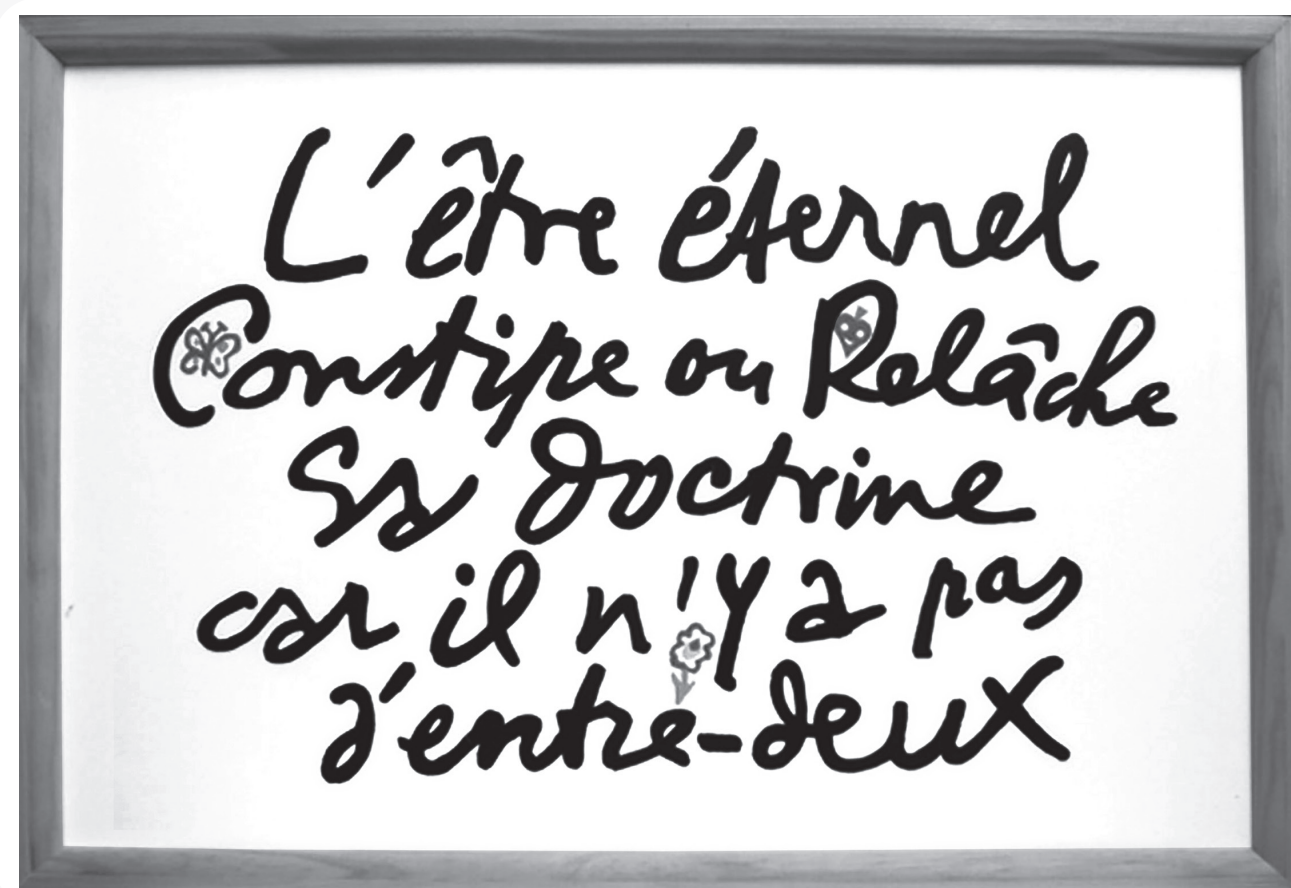 L'être éternel
Constipe ou Relâche
Sa doctrine
car il n'y a pas
d'entre-deux